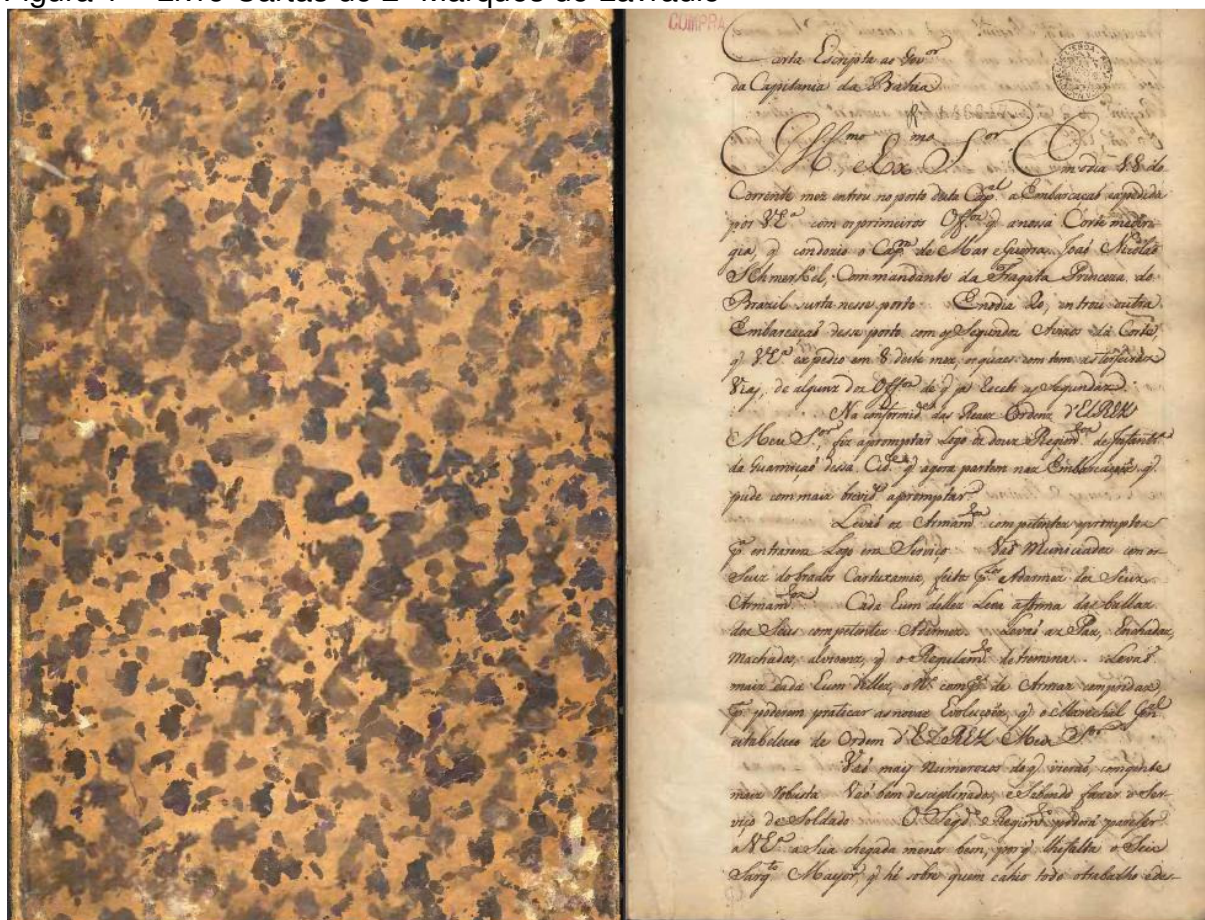 Figura 1 – Livro Cartas do 2º Marquês do Lavradio
COMPRA
Carta Escripta ao Gov.or
da Capitania da Bahia
Ill.mo e Ex.mo S.or Em o dia 18 do
Corrente mez entrou no porto desta Cap.al a Embarcaçaõ expedida
por V.E.a com os primeiros Off.os q̃ a nossa Corte me
q̃ condozio o Cap.m de Mar e Guerra Joaõ Nicolao
Schmerkel, Commandante da Fragata Princeza do
Brazil surta nesse porto. Em o dia 20, entrou outra
Embarcaçaõ desse porto com os Segundos Avizos da Corte,
q̃ V.E.a expedio em 8 deste mez, os quaes contem as terseiras
Vias, de alguns dos Off.os de q̃ já Recebi as Segundas.
Na conformid.e das Reaes Ordens d'ELREY
Meu S.or, fiz apromptar logo os dous Regim.tos de Infant.a
da Guarniçaõ dessa Cid.e q̃ agora partem nas Embarcaçoẽs, q̃
pude com mais brevid.e apromptar.
Levaõ os Armam.tos competentes apromptos
p.a entrarem logo em Serviço. Vaõ Municiados com os
Seus dobrados Cartuxames, feitos p.los Adarmes dos Seus
Armam.tos Cada Eum delles Leva a forma das ballas
dos Seus competentes Adarmes. Levaõ as Pas, Enchadas,
Machados, alvioens, q̃ o Regulam.to detremina. Levaõ
mais Cada Eum delles, o N.o comp.te de Armas compridas,
p.a poderem praticar as novas Evoluçoẽs, q̃ o Marechal Gen.al
estabeleceo de Ordem d'ELREY Meu S.or
Vaõ mais Numerozos do q̃ vieraõ, com gente
mais Robusta. Vaõ bem desciplinados, e Sabendo fazer o Ser-
viço de Soldado. O Seg.do Regim.to poderá pareser
a V.E.a a Sua chegada menos bem, porq̃ lhe falta o Seu
Sarg.to Mayor, q̃ hé sobre quem cahio todo o trabalho e des-